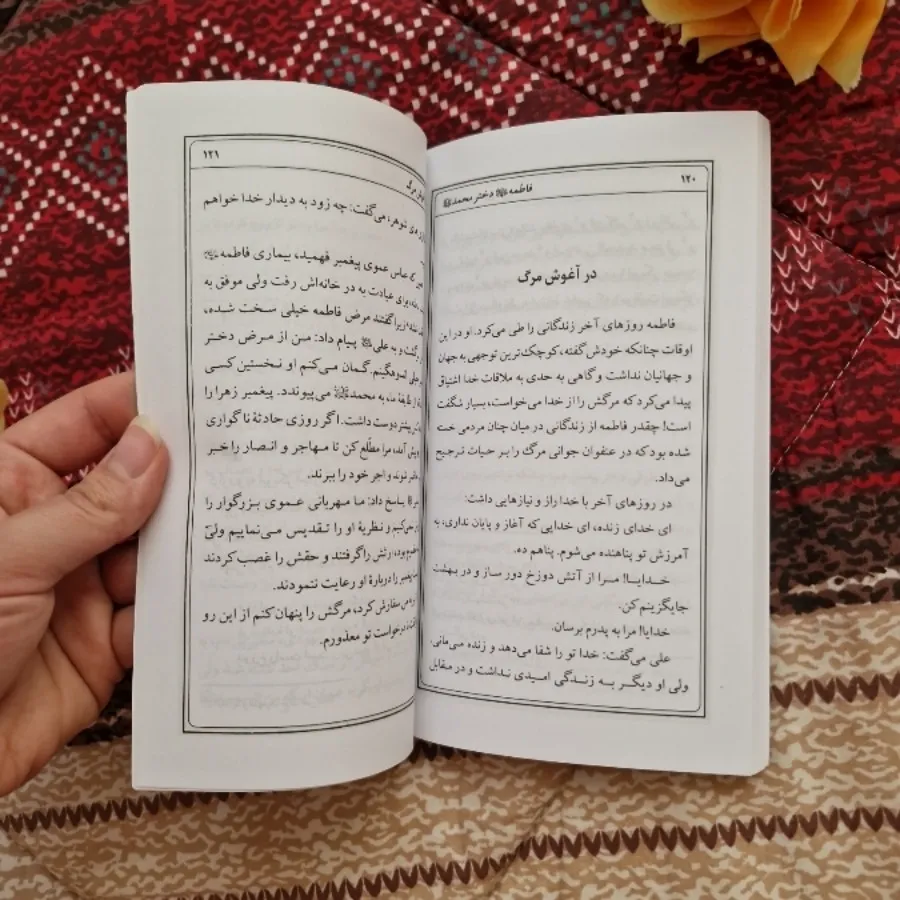 ۱۲۰
فاطمه دختر محمد
در آغوش مرگ
فاطمه روزهای آخر زندگانی را طی می‌کرد. او در این
اوقات چنانکه خودش گفته، کوچک‌ترین توجهی به جهان
و جهانیان نداشت و گاهی به حدی به ملاقات خدا اشتیاق
پیدا می‌کرد که مرگش را از خدا می‌خواست، بسیار شگفت
است! چقدر فاطمه از زندگانی در میان چنان مردمی خسته
شده بود که در عنفوان جوانی مرگ را بر حیات ترجیح
می‌داد.
در روزهای آخر با خدا راز و نیازهایی داشت:
ای خدای زنده، ای خدایی که آغاز و پایان نداری، به
آمرزش تو پناهنده می‌شوم. پناهم ده.
خدایا! مرا از آتش دوزخ دور ساز و در بهشت
جایگزینم کن.
خدایا! مرا به پدرم برسان.
علی می‌گفت: خدا تو را شفا می‌دهد و زنده می‌مانی.
ولی او دیگر به زندگی امیدی نداشت و در مقابل
۱۲۱
مرگ
شوهر، می‌گفت: چه زود به دیدار خدا خواهم
عباس عموی پیغمبر فهمید، بیماری فاطمه
برای عیادت به در خانه‌اش رفت ولی موفق به
زیرا گفتند مرض فاطمه خیلی سخت شده،
و به علی پیام داد: من از مرض دختر
گمان می‌کنم او نخستین کسی
از ما، به محمد می‌پیوندد. پیغمبر زهرا را
بیشتر دوست داشت. اگر روزی حادثهٔ ناگواری
پیش آمد، مرا مطّلع کن تا مهاجر و انصار را خبر
شوند و اجر خود را ببرند.
پاسخ داد: ما مهربانی عموی بزرگوار را
و نظریهٔ او را تقدیس می‌نماییم ولی
بود، ارثش را گرفتند و حقش را غصب کردند
پیغمبر را دربارهٔ او رعایت ننمودند.
سفارش کرد، مرگش را پنهان کنم از این رو
درخواست تو معذورم.